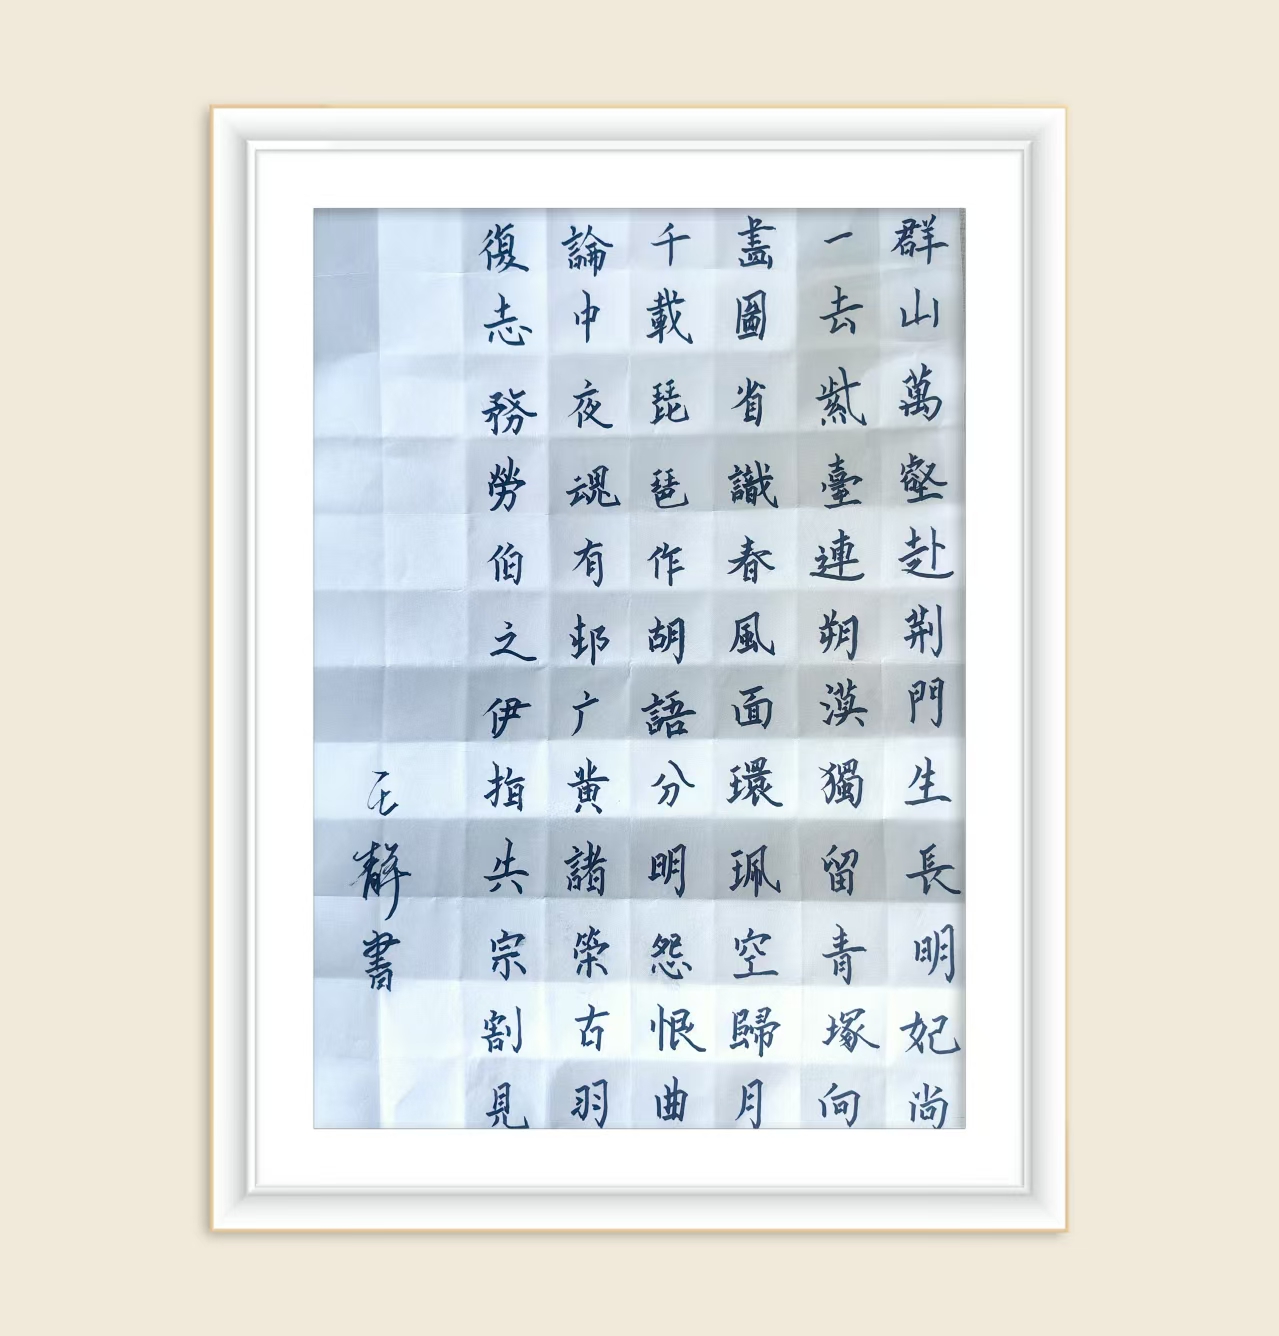 群山萬壑赴荆門生長明妃尚
一去紫臺連朔漠獨留青塚向
畫圖省識春風面環珮空歸月
千載琵琶作胡語分明怨恨曲
論中夜魂有邨广黄諸榮古羽
復志務勞伯之伊指失宗割見
王静書